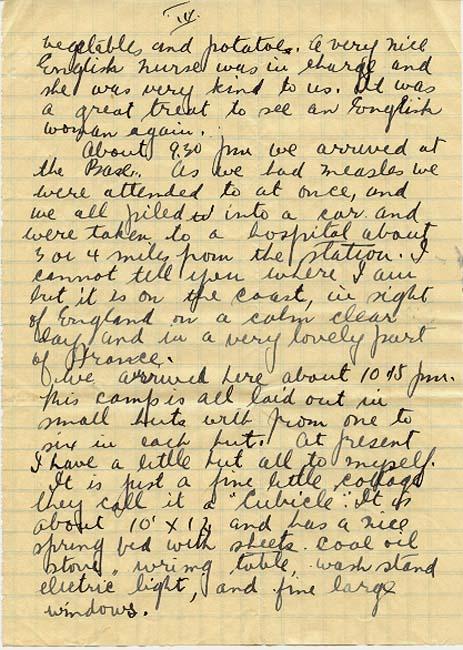 IV.
vegetables and potatoes. A very nice
English nurse was in charge and
she was very kind to us. It was
a great treat to see an English
woman again.
About 9.30 pm we arrived at
the Base. As we had measles we
were attended to at once, and
we all piled into a car and
were taken to a hospital about
3 or 4 miles from the station. I
cannot tell you where I am
but it is on the coast, in sight
of England on a calm clear
day and in a very lovely part
of France.
We arrived here about 10 15 pm.
This camp is all laid out in
small huts with from one to
six in each hut. At present
I have a little hut all to myself.
It is just a fine little cottage
they call it a "Cubicle". It is
about 10' x 12 and has a nice
spring bed with sheets. coal oil
stove, wring table, wash stand
electric light, and fine large
windows.